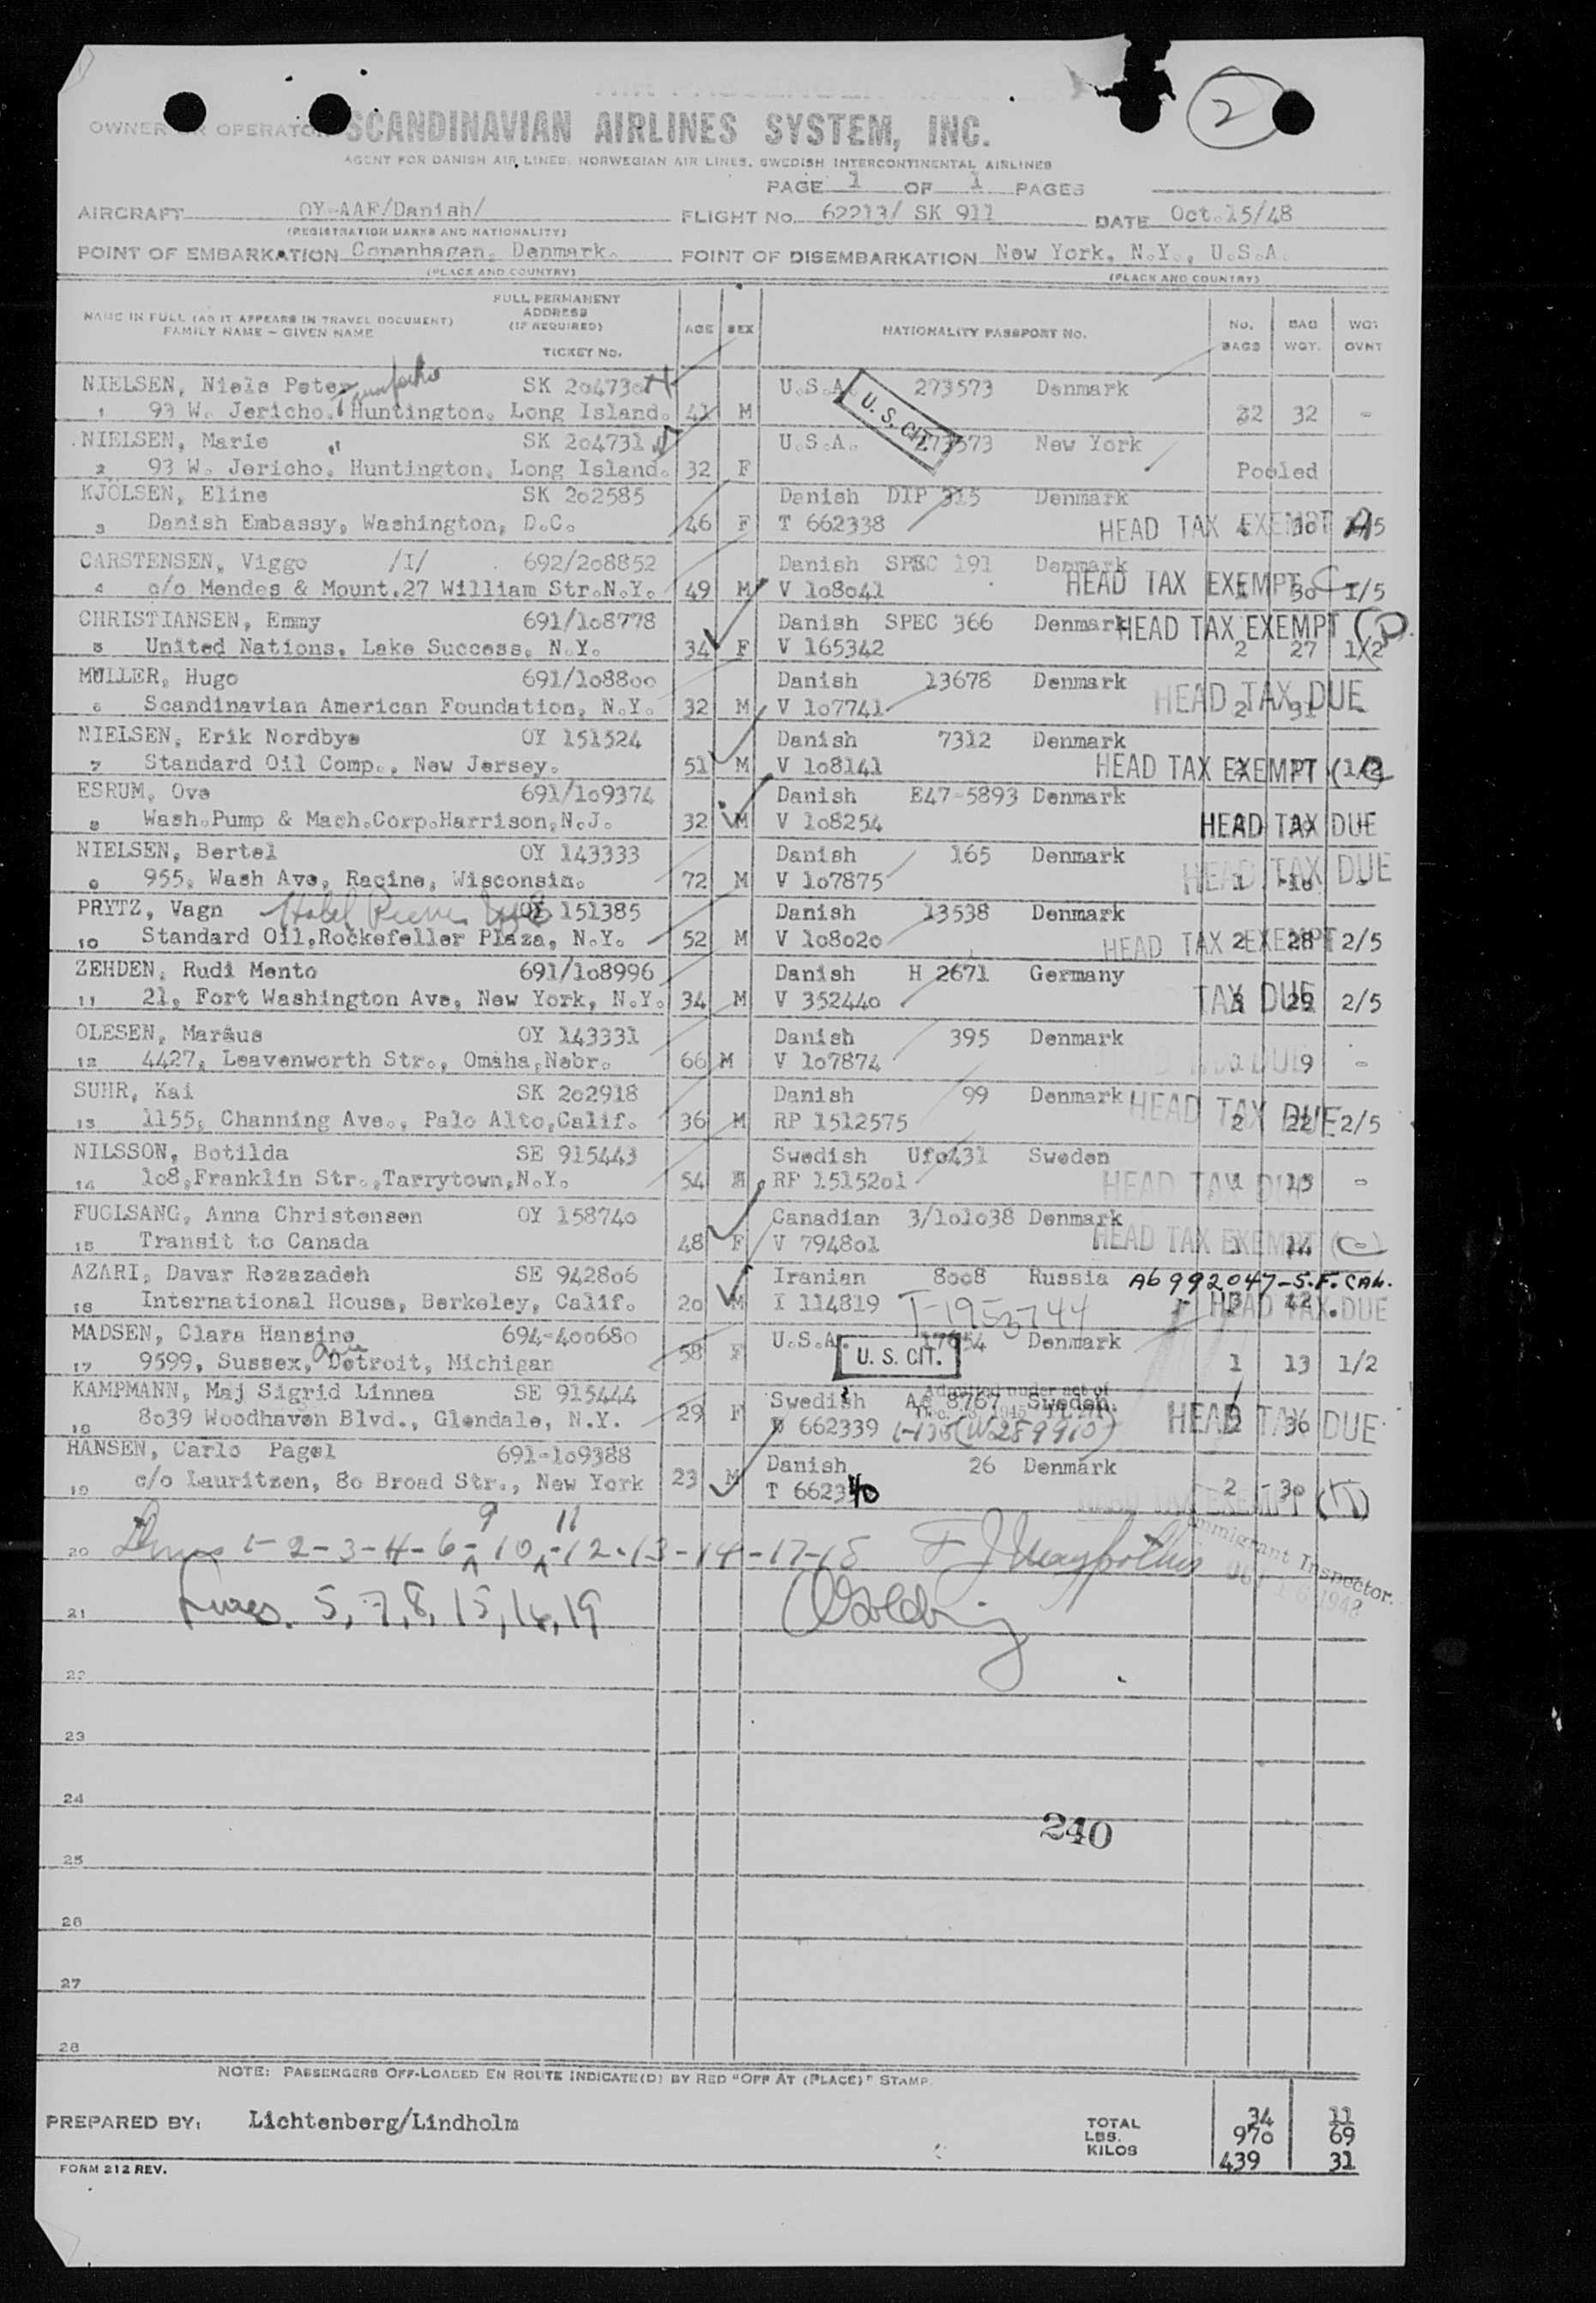 2
OWNER OR OPERATOR SCANDINAVIAN AIRLINES SYSTEM, INC.
AGENT FOR DANISH AIR LINES, NORWEGIAN AIR LINES, SWEDISH INTERCONTINENTAL AIRLINES
PAGE 1 OF 1 PAGES
AIRCRAFT OY-AAF/Danish/ FLIGHT No. 62213/ SK 911 DATE Oct.15/48
(REGISTRATION MARKS AND NATIONALITY)
POINT OF EMBARKATION Copenhagen, Denmark. POINT OF DISEMBARKATION New York, N.Y., U.S.A.
(PLACE AND COUNTRY) (PLACE AND COUNTRY)
NAME IN FULL (AS IT APPEARS IN TRAVEL DOCUMENT) FAMILY NAME - GIVEN NAME FULL PERMANENT ADDRESS (IF REQUIRED) TICKET NO. AGE SEX NATIONALITY PASSPORT NO. NO. BAGS BAG WGT. WGT OVNT
NIELSEN, Niels Peter SK 204730 U.S.A. 273573 Denmark
1 93 W. Jericho, Huntington, Long Island. 41 M 32 -
U. S. CIT.
NIELSEN, Marie SK 204731 U.S.A. 273573 New York
2 93 W. Jericho, Huntington, Long Island. 32 F Pooled
KJOLSEN, Eline SK 202585 Danish DIP 315 Denmark
3 Danish Embassy, Washington, D.C. 46 F T 662338 HEAD TAX EXEMPT A
CARSTENSEN, Viggo /I/ 692/208852 Danish SPEC 191 Denmark
4 c/o Mendes & Mount.27 William Str.N.Y. 49 M V 108041 HEAD TAX EXEMPT 30 1/5
CHRISTIANSEN, Emmy 691/108778 Danish SPEC 366 Denmark HEAD TAX EXEMPT
5 United Nations, Lake Success, N.Y. 34 F V 165342 2 27 1/2
MULLER, Hugo 691/108800 Danish 13678 Denmark
6 Scandinavian American Foundation, N.Y. 32 M V 107741 HEAD TAX DUE 2 31 -
NIELSEN, Erik Nordbye OY 151524 Danish 7312 Denmark
7 Standard Oil Comp., New Jersey. 51 M V 108141 HEAD TAX EXEMPT
ESRUM, Ove 691/109374 Danish E47-5893 Denmark
8 Wash.Pump & Mach.Corp.Harrison,N.J. 32 M V 108254 HEAD TAX DUE
NIELSEN, Bertel OY 143333 Danish 165 Denmark
9 955, Wash Ave, Racine, Wisconsin. 72 M V 107875 HEAD TAX DUE
PRYTZ, Vagn OY 151385 Danish 13538 Denmark
10 Standard Oil,Rockefeller Plaza, N.Y. 52 M V 108020 HEAD TAX EXEMPT 2 28 2/5
ZEHDEN, Rudi Mento 691/108996 Danish H 2671 Germany
11 21, Fort Washington Ave, New York, N.Y. 34 M V 352440 TAX DUE 2/5
OLESEN, Marius OY 143331 Danish 395 Denmark
12 4427, Leavenworth Str., Omaha,Nebr. 66 M V 107874 9 -
SUHR, Kai SK 202918 Danish 99 Denmark HEAD TAX DUE
13 1155, Channing Ave., Palo Alto,Calif. 36 M RP 1512575 2 22 2/5
NILSSON, Botilda SE 915443 Swedish Ufo431 Sweden
14 108,Franklin Str.,Tarrytown,N.Y. 54 RP 1515201 HEAD TAX DUE -
FUGLSANG, Anna Christensen OY 158740 Canadian 3/101038 Denmark
15 Transit to Canada 48 F V 794801 HEAD TAX EXEMPT (C) 14
AZARI, Davar Rezazadeh SE 942806 Iranian 8008 Russia Ab 992047-S.F. CAL.
16 International House, Berkeley, Calif. 20 M I 114819 T-1953744 HEAD TAX DUE
MADSEN, Clara Hansine 694-400680 U.S.A. Denmark
17 9599, Sussex, Ave Detroit, Michigan 58 F U. S. CIT. 1 13 1/2
KAMPMANN, Maj Sigrid Linnea SE 915444 Swedish 8767 Sweden
Admitted under act of
18 8039 Woodhaven Blvd., Glendale, N.Y. 29 F 662339 HEAD TAX DUE
HANSEN, Carlo Pagel 691-109388 Danish 26 Denmark
19 c/o Lauritzen, 80 Broad Str., New York 23 M T 662340 2 30
HEAD TAX EXEMPT
9 11
20 Lines 1-2-3-4-6-10-12-13-14-17-18
Immigrant Inspector.
21 Lines. 5, 7, 8, 15, 16, 19
22
23
24
240
25
26
27
28
NOTE: PASSENGERS OFF-LOADED EN ROUTE INDICATE(D) BY RED "OFF AT (PLACE)" STAMP.
PREPARED BY: Lichtenberg/Lindholm TOTAL 34 11
LBS. 970 69
KILOS 439 31
FORM 212 REV.